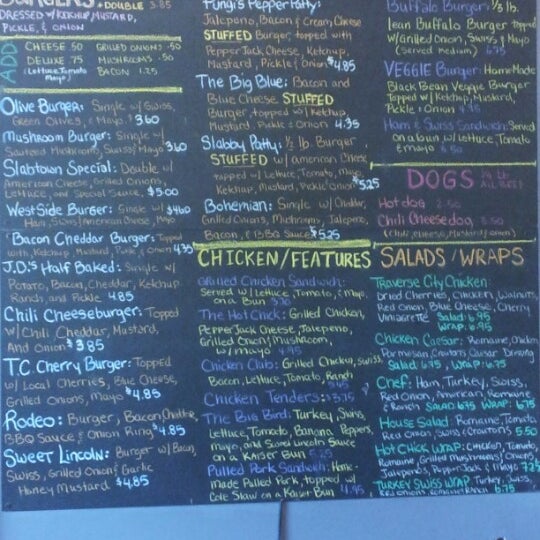 BURGERS
DOUBLE 3.85
DRESSED W/KETCHUP, MUSTARD,
PICKLE, & ONION
ADD
CHEESE 50 GRILLED ONIONS .50
DELUXE 75 MUSHROOMS .50
(Lettuce, Tomato BACON 1.25
Mayo)
Olive Burger: Single w/ Swiss,
Green Olives, & Mayo 3.60
Mushroom Burger: Single w/
Sauteed Mushrooms, Swiss, & Mayo 3.60
Slabtown Special: Double w/
American Cheese, Grilled Onions,
Lettuce, and Special Sauce $5.00
WestSide Burger: Single w/ $4.60
Ham, Swiss/American Cheese, Mayo
Bacon Cheddar Burger: Topped
with Ketchup, Mustard, Pickle, & Onion 4.35
J.D.'s Half Baked: Single w/
Potato, Bacon, Cheddar, Ketchup
Ranch, and Pickle 4.85
Chili Cheeseburger: Topped
w/ Chili Cheddar, Mustard,
And Onion $3.85
T.C. Cherry Burger: Topped
w/ Local Cherries, Blue Cheese,
Grilled Onions, Mayo $4.85
Rodeo: Burger, Bacon, Cheddar,
BBQ Sauce, & Onion Ring $4.85
Sweet Lincoln: Burger w/ Bacon,
Swiss, Grilled Onion & Garlic
Honey Mustard $4.85
Fungi's Pepper Patty:
Jalapeno, Bacon & Cream Cheese
STUFFED Burger, topped with
Pepper Jack Cheese, Ketchup,
Mustard, Pickle & Onion $4.85
The Big Blue: Bacon and
Blue Cheese STUFFED
Burger, topped w/ Ketchup,
Mustard, Pickle & Onion 4.35
Slabby Patty: 1/2 lb. Burger
STUFFED w/ american Cheese
topped w/ Lettuce, Tomato, Mayo,
Ketchup, Mustard, Pickle, Onion $5.25
Bohemian: Single w/ Cheddar,
Grilled Onions, Mushrooms, Jalapeno,
Bacon, & BBQ Sauce $5.25
CHICKEN/FEATURES
Grilled Chicken Sandwich:
Served w/ Lettuce, Tomato, & Mayo,
on a Bun
The Hot Chick: Grilled Chicken,
Pepper Jack Cheese, Jalapeno,
Grilled Onion & Mushroom,
w/ mayo 4.95
Chicken Club: Grilled Chicken, Swiss,
Bacon, Lettuce, Tomato, Ranch
Chicken Tenders: $3.75
The Big Bird: Turkey, Swiss,
Lettuce, Tomato, Banana Peppers,
mayo, and Sweet Lincoln Sauce
on a Kaiser Bun 5.25
Pulled Pork Sandwich: Home-
made Pulled Pork, topped w/
Cole Slaw on a Kaiser Bun 4.95
Buffalo Burger: 1/3 lb.
lean Buffalo Burger topped
w/ Grilled Onion, Swiss & Mayo
(Served medium) 6.75
VEGGIE Burger: HomeMade
Black Bean Veggie Burger
Topped w/ Ketchup, Mustard,
Pickle & Onion
Ham & Swiss Sandwich: Served
on a bun w/ Lettuce, Tomato
& mayo
DOGS 1/4 lb.
ALL BEEF!
Hotdog 2.50
Chili Cheesedog 3.50
(chili, cheese, Mustard/onion)
SALADS/WRAPS
Traverse City Chicken:
Dried Cherries, Chicken, Walnuts,
Red Onion, Blue Cheese, Cherry
Viniagrette Salad 6.95
Wrap: 6.95
Chicken Caesar: Romaine, Chicken,
Parmesan, Croutons, Caesar Dressing
Salad 6.75, Wrap: 6.75
Chef: Ham, Turkey, Swiss,
Red Onion, American, Romaine
& Ranch SALAD 6.75 WRAP: 6.75
House Salad: Romaine, Tomato,
Red Onion, Swiss, Croutons 5.50
Hot Chick WRAP: Chicken, Tomato,
Romaine, Grilled Mushrooms/Onions,
Jalapenos, Pepper Jack & Mayo 7.25
TURKEY SWISS WRAP Turkey, Swiss,
Red Onions, Romaine, Ranch 6.75